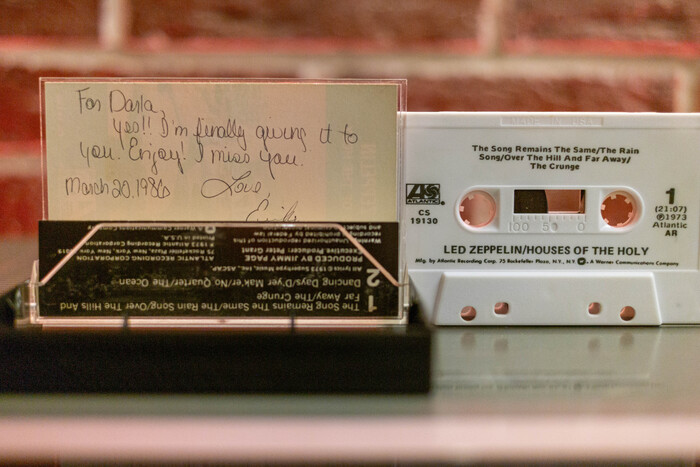 For Darla,
Yes!! I'm finally giving it to
you. Enjoy! I miss you.
March 20, 1986 Love,
The Song Remains The Same/The Rain Song/Over The Hills And
Far Away/The Crunge
1
Dancing Days/D'yer Mak'er/No Quarter/The Ocean
2
All lyrics © 1973 Superhype Music, Inc. ASCAP
PRODUCED BY JIMMY PAGE
Executive Producer: Peter Grant
ATLANTIC RECORDING CORPORATION
75 Rockefeller Plaza, New York, New York 10019
© 1973 Atlantic Recording Corporation
Printed in U.S.A.
The Song Remains The Same/The Rain
Song/Over The Hill And Far Away/
The Crunge
ATLANTIC
CS
19130
1
(21:07)
℗1973
Atlantic
AR
100 50 0
LED ZEPPELIN/HOUSES OF THE HOLY
Mfg. by Atlantic Recording Corp. 75 Rockefeller Plaza, N.Y., N.Y. A Warner Communications Company